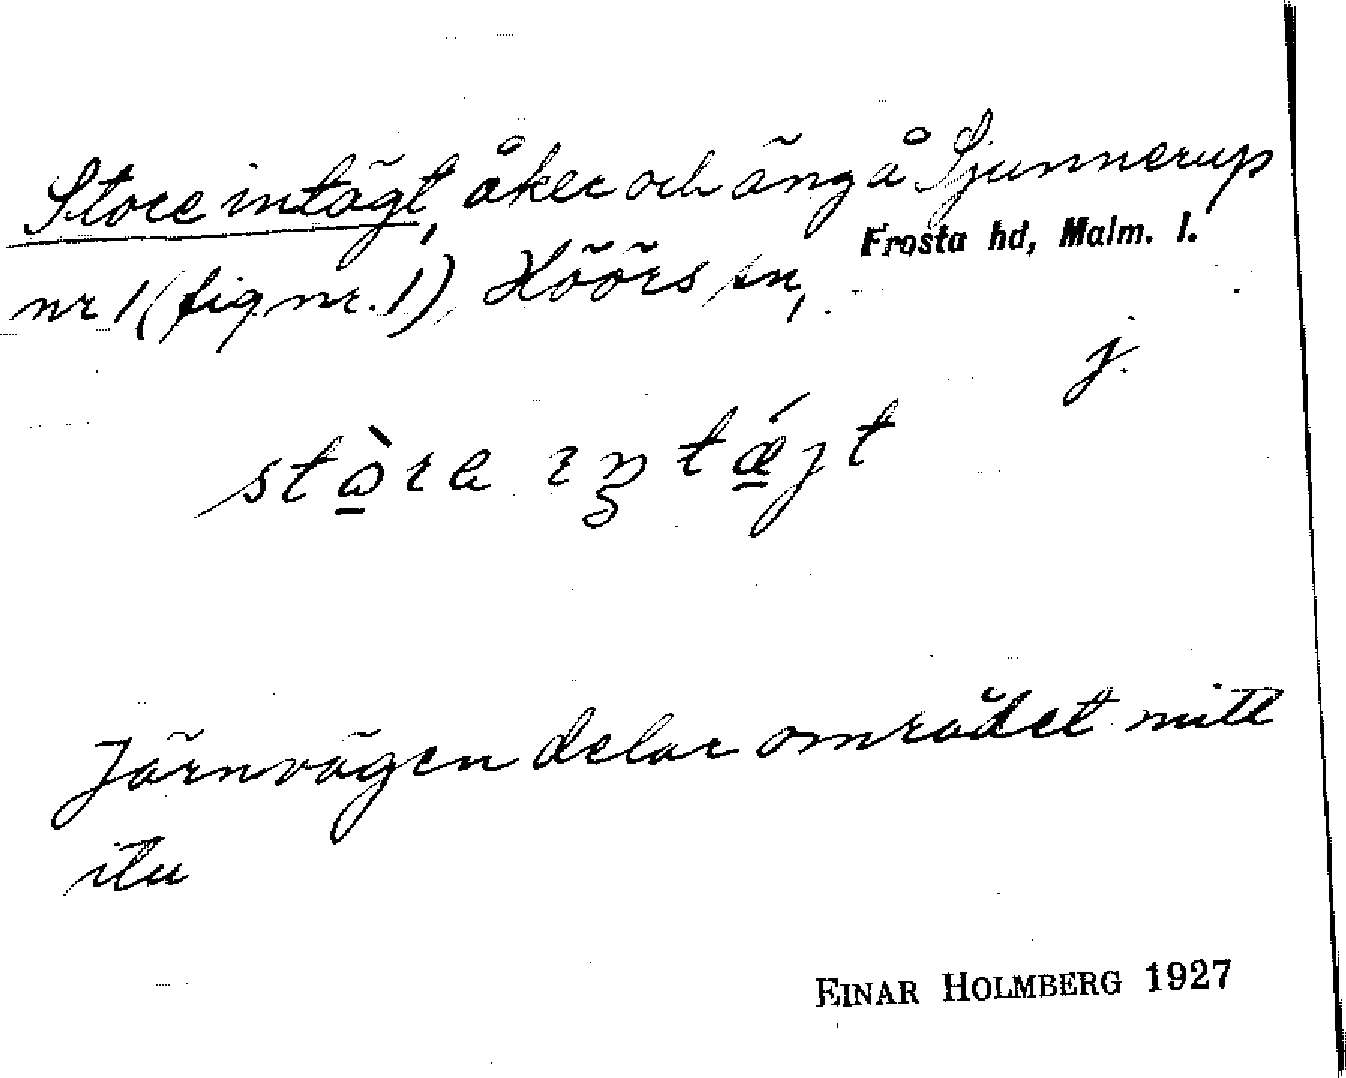 Store intägt, åker och äng å Sjunnerup
Frosta hd, Malm. l.
nr 1 (fig nr. 1), Höörs sn,
j.
Järnvägen delar området mitt
itu
EINAR HOLMBERG 1927